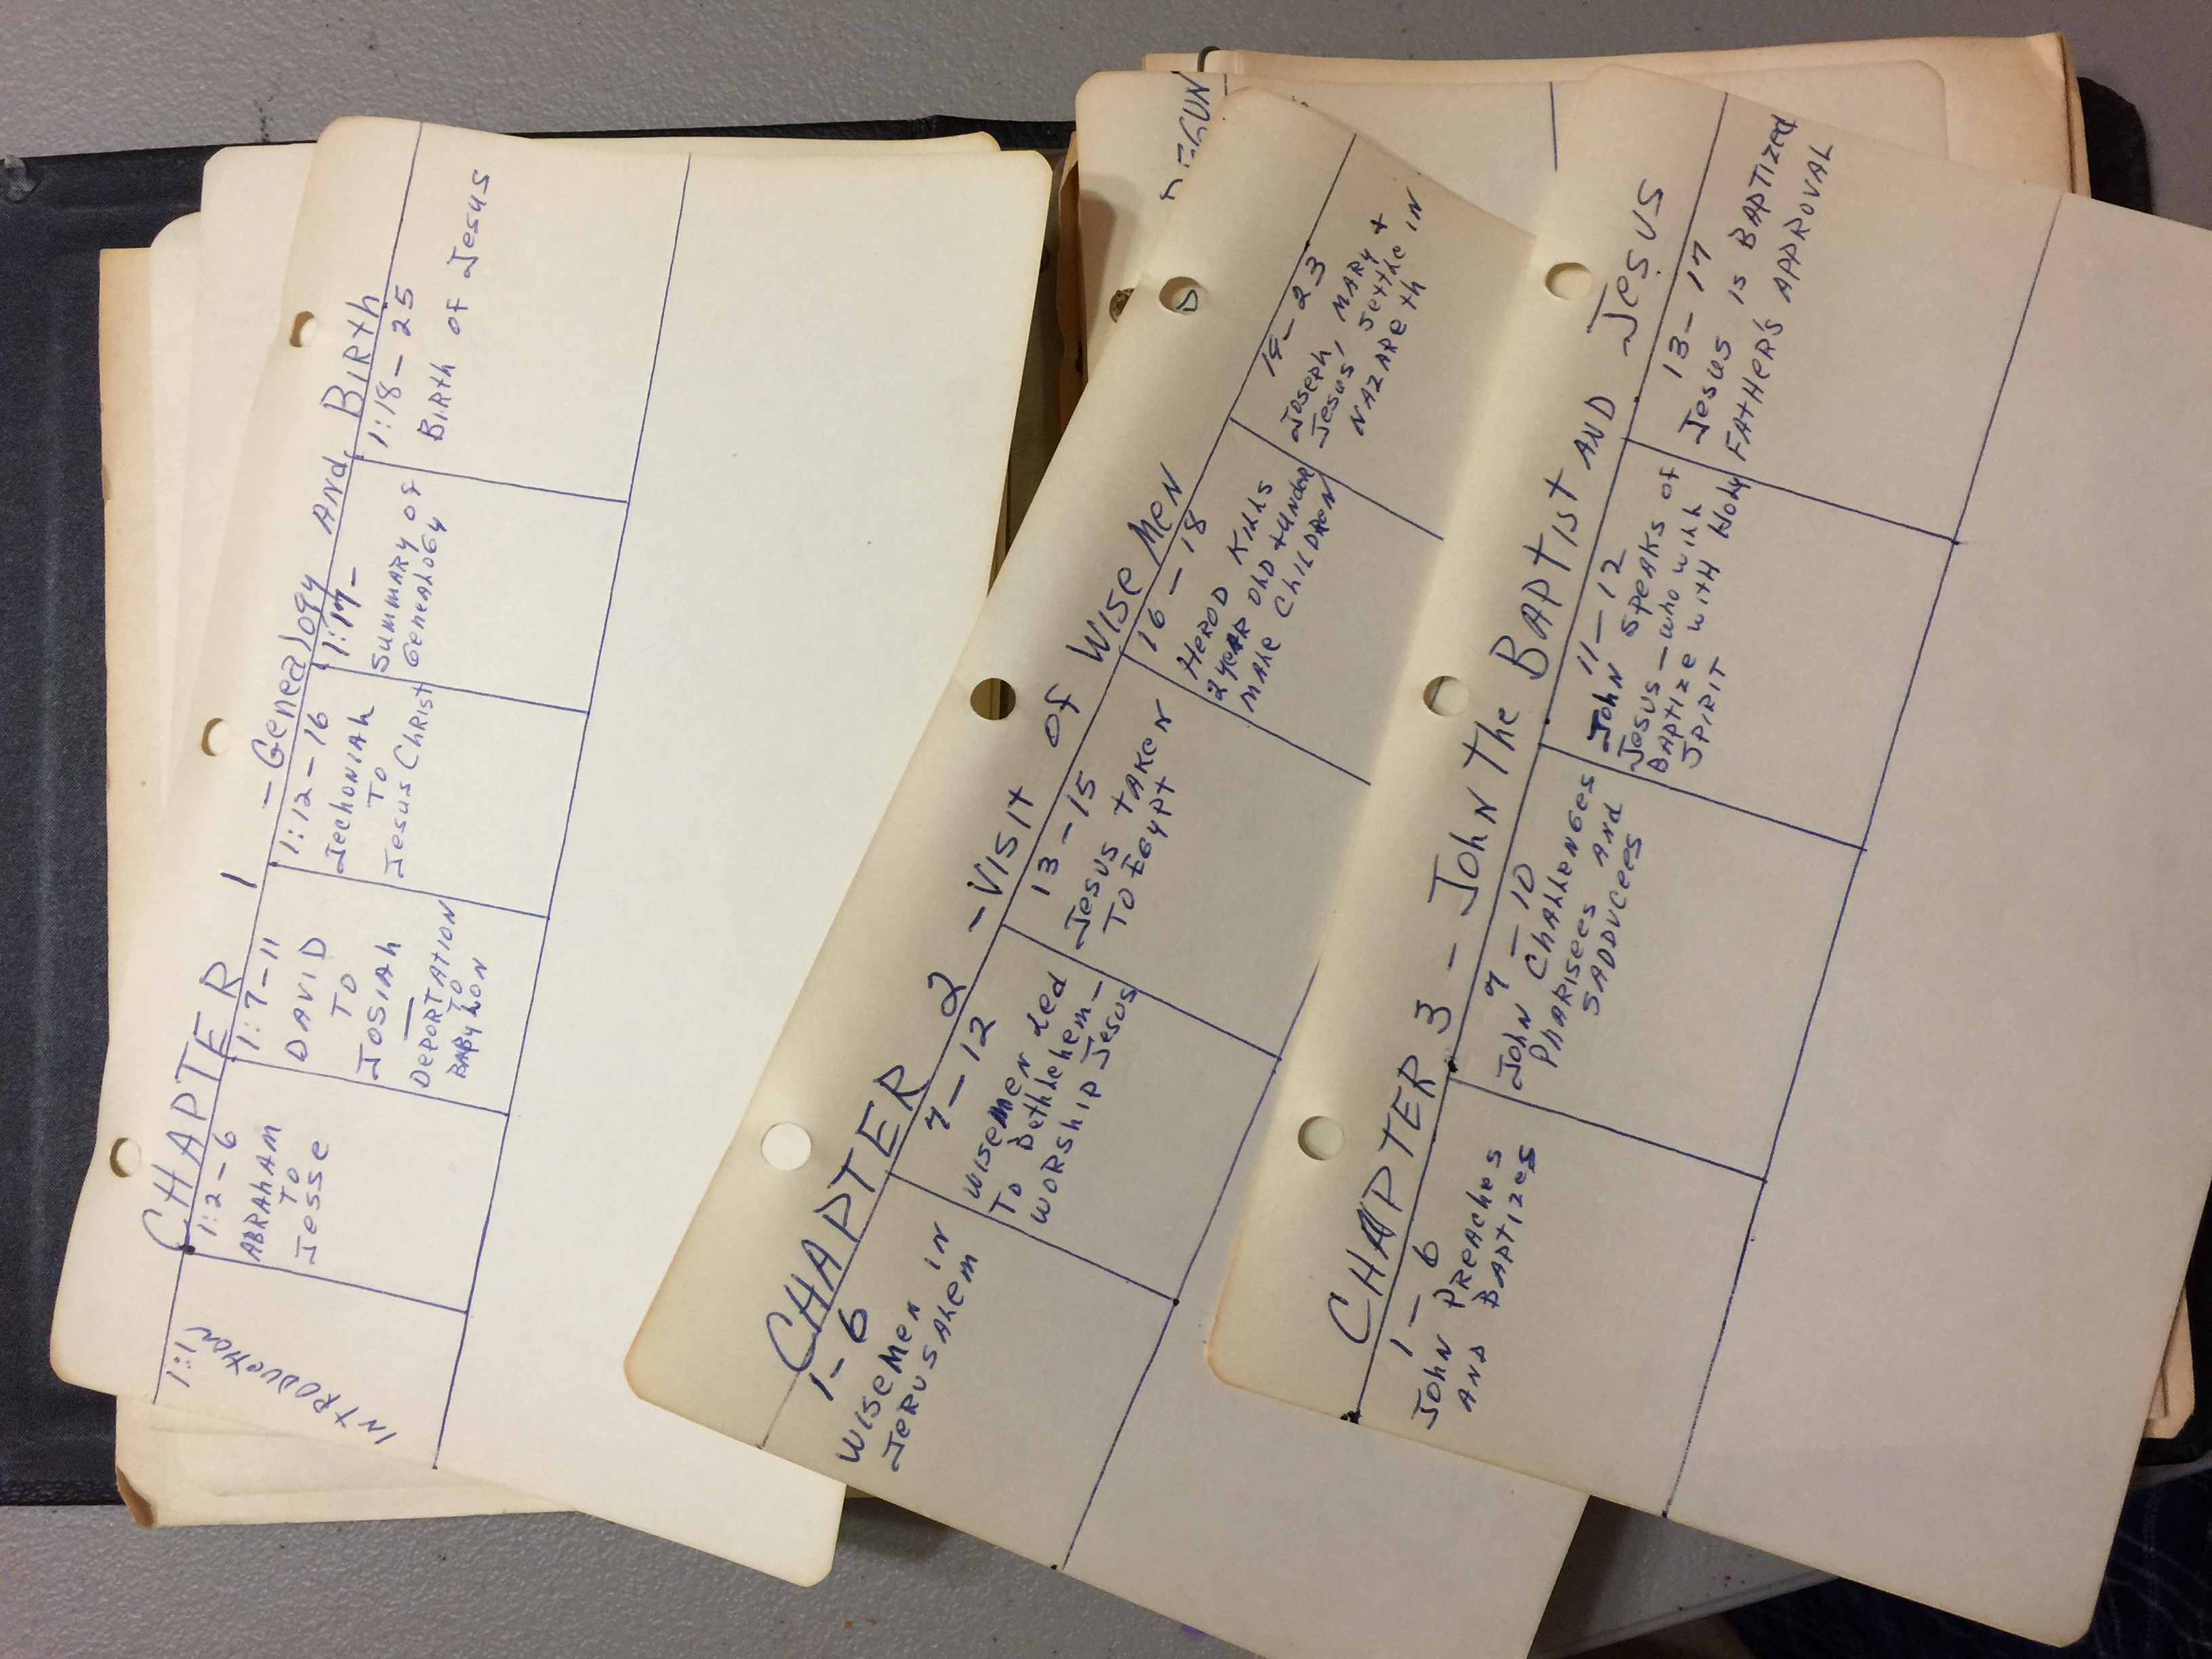 CHAPTER 1 - Genealogy AND BIRTH
1:1
INTRODUCTION
1:2-6
ABRAhAM
TO
Jesse
1:7-11
DAVID
TO
JOSIAh
—
DEPORTATION
TO
BABYLON
1:12-16
JechoNIAh
TO
Jesus Christ
1:17-
SUMMARY OF
GeneALOGY
1:18-25
BIRth OF Jesus
CHAPTER 2 - VISIT OF WISE MEN
1-6
WISEMEN IN
JERUSALEM
7-12
WISEMEN Led
TO BethLehem-
WORSHIP Jesus
13-15
Jesus TAKEN
TO EGYPT
16-18
HEROD KILLS
2 YEAR OLD + UNDER
MALE CHILDREN
19-23
JOSEPH, MARY +
Jesus, settLe IN
NAZAREth
CHAPTER 3 - JohN The BAPTIST AND JESUS
1-6
JohN PREAChes
AND BAPTIZES
7-10
JohN ChALLENGES
PhARISEES AND
SADDUCEES
11-12
JohN SPEAKS OF
Jesus - who wiLL
BAPTIZE WITH HoLy
SPIRIT
13-17
Jesus IS BAPTIZED
FATHER'S APPROVAL